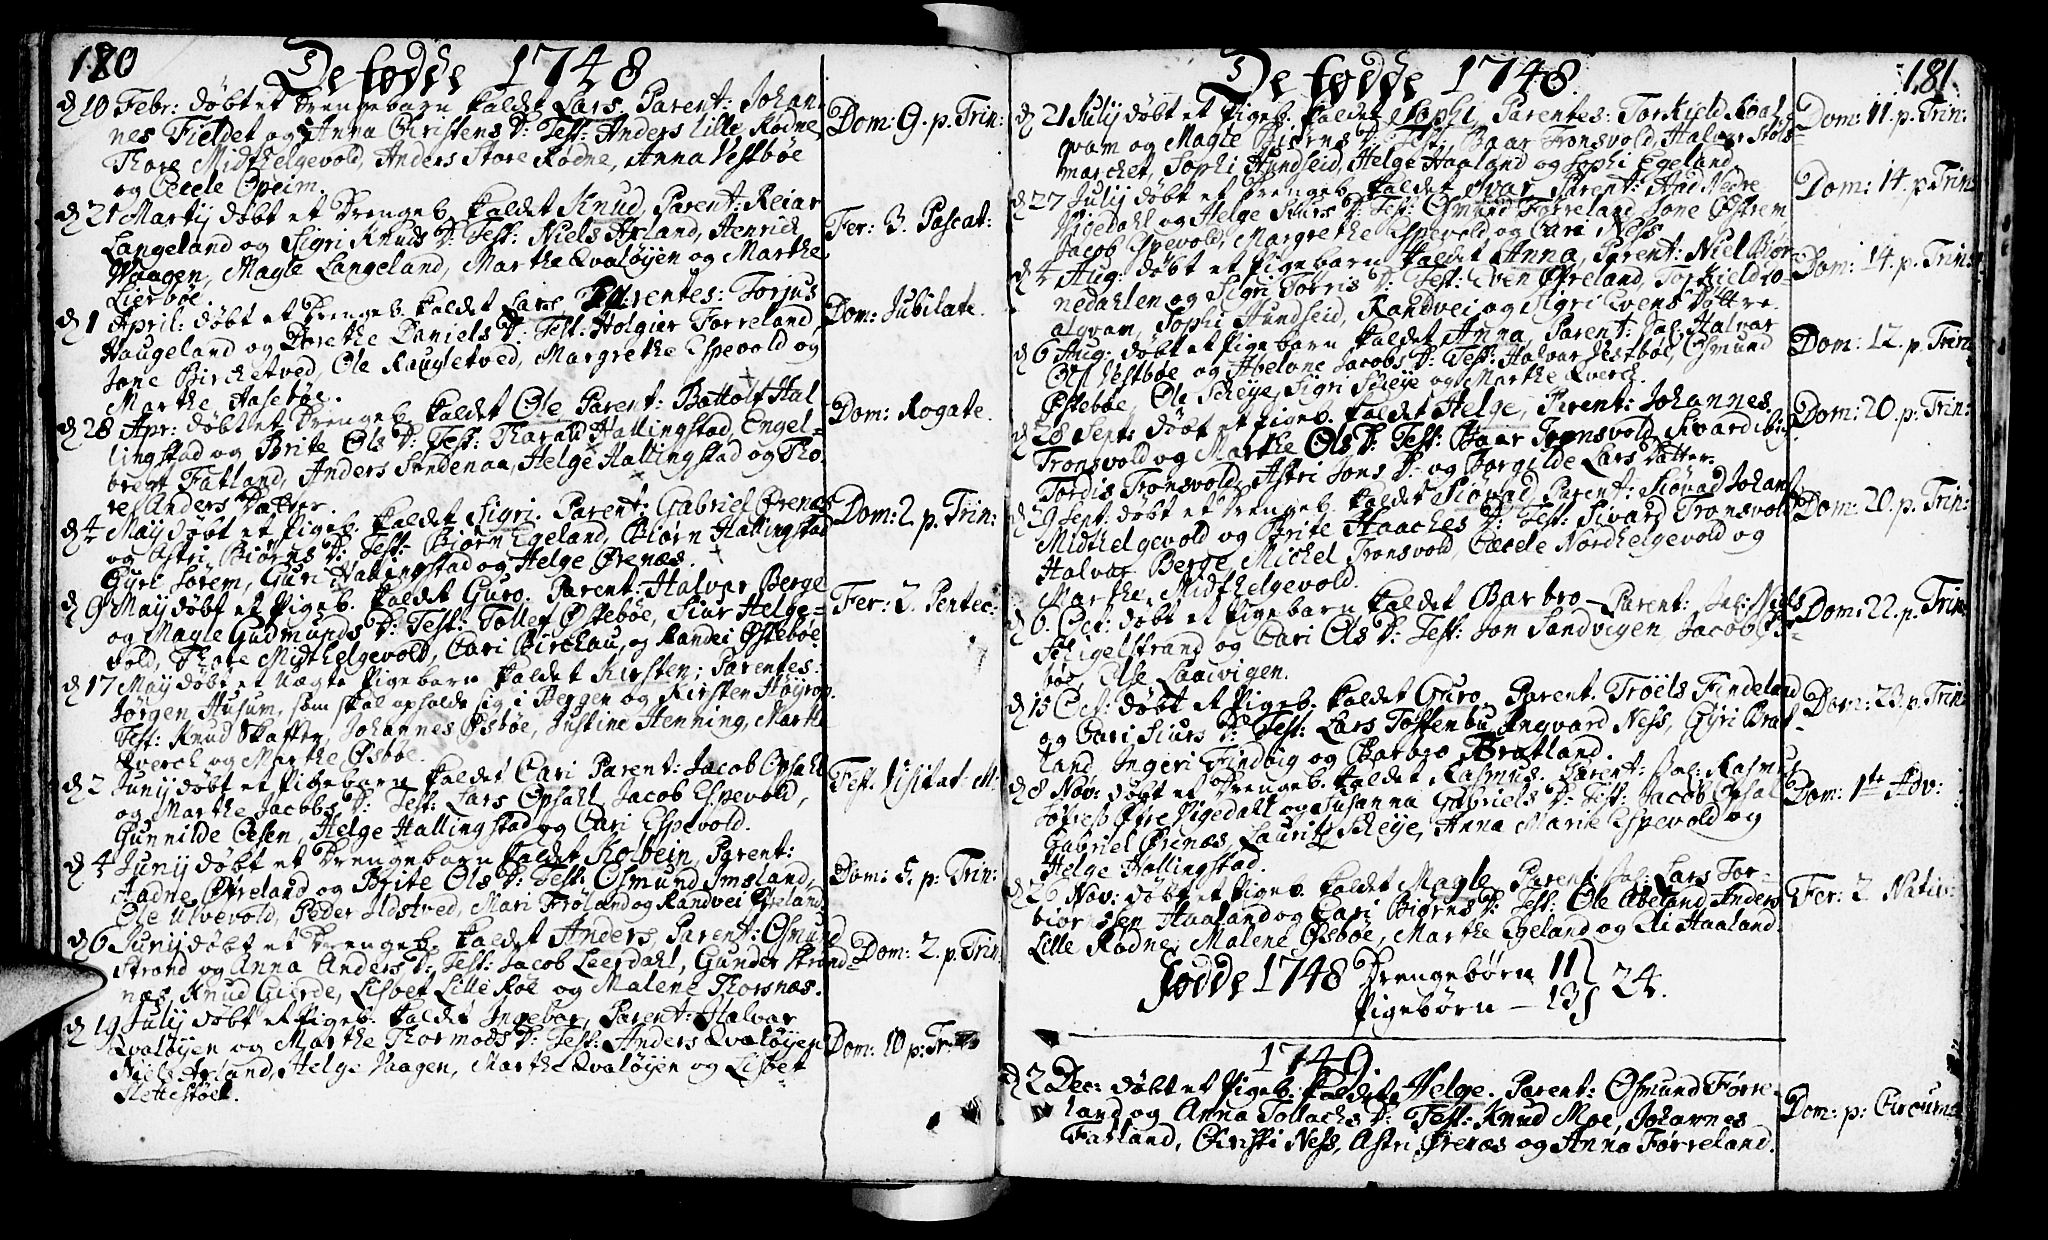 180
De fødde 1748
d 10 Febr: døbt et Drengebarn kaldet Lars, Parent: Johan-
nes Fieldet og Anna Christens D: Test: Anders Lille Rødne,
Thore Midthelgevold, Anders Store Rødne, Anna Vestbøe
og Cecele Opeim.
Dom: 9. p. Trin:
d 21 Martij døbt et Drengeb. kaldet Knud, Parent: Reiar
Langeland og Sigri Knuds D: Test: Niels Arland, Henrich
Waagen, Magle Langeland, Marthe Qvaløyen og Marthe
Lierbøe.
Fer: 3. Pascat:
d 1 April: døbt et Drengeb. kaldet Lars Parentes: Torjus
Haugeland og Dorethe Daniels D: Test: Holgier Førreland,
Jone Birchetved, Ole Raugletved, Margrethe Espevold og
Marthe Aasebøe.
Dom: Jubilate.
d 28 Apr: døbt et Drengeb. kaldet Ole Parent: Bottolf Hal
lingstad og Brite Ols D: Test: Harald Hallingstad, Engel-
brecht Fatland, Anders Søndenaa, Helge Hallingstad og Tho-
re Anders Datter.
Dom: Rogate.
d 4 Maij døbt et Pigeb. kaldet Sigri. Parent: Gabriel Ørenæs
og Astri Biørns D: Test: Biørn Egeland, Biørn Hallingstad
Gyri Sørem, Guri Hallingstad og Helge Ørenæs.
Dom: 2. p. Trin:
d 9 Maij døbt et Pigeb. kaldet Guro. Parent: Halvar Berge
og Magle Gudmunds D: Test: Tollef Østebøe, Siur Helge-
vold, Thore Midthelgevold, Cari Birchau, og Randei Østebøe
Fer: 2. Pentec:
d 17 Maij døbt et Uægte Pigebarn kaldet Kirsten; Parentes:
Jørgen Husum, som skal opholde sig i Bergen og Kirsten Høyrop.
Test: Knud Skafter, Johannes Øsbøe, Justine Henning, Marthe
Qverch og Marthe Øsbøe.
d 2 Junij døbt et Pigebarn kaldet Cari Parent: Jacob Opsahl
og Marthe Jacobs D: Test: Lars Opsahl, Jacob Espevold,
Gunnilde Ølen, Helge Hallingstad og Cari Espevold.
Fest. Visitat. M:
d 4 Junij døbt et Drengebarn kaldet Kolbein, Parent:
Aadne Øvreland og Brite Ols D: Test: Osmund Imsland,
Ole Ulvevold, Peder Ilstved, Mari Frøland og Randvei Øvreland
Dom: 5. p: Trin:
d 6 Junij døbt et Drengeb. kaldet Anders, Parent: Osmund
Strand og Anna Anders D: Test: Jacob Leerdahl, Gunder Strand-
næs, Knud Gierde, Lisbet Lille Roe og Malene Thorsnæs.
Dom: 2. p. Trin
d 19 Julij døbt et Pigeb. kaldet Ingebor, Parent: Halvar
Qvaløyen og Marthe Thormods D: Test: Anders Qvaløyen
Niels Arland, Helge Vaagen, Marthe Qvaløyen og Lisbet
Slettestøel.
Dom: 10 p: Tr:
181
De fødde 1748.
d 21 Julij døbt et Pigeb. kaldet Sophi, Parentes: Torkield Roal-
qvam og Magle Gudens D: Test: Baar Tronsvold, Halvar Stols-
marchet, Sophi Hundseid, Helge Haaland og Sophi Egeland.
Dom: 11. p. Trin:
d 27 Julij døbt et Drengeb. kaldet Ivar, Parent: Aad Nedre
Vigedahl og Helge Siurs D: Test: Osmund Førreland, Jone Østrem
Jacob Espevold, Margrethe Espevold og Cari Ness
Dom: 14. p. Trin:
d 4 Aug: døbt et Pigebarn kaldet Anna, Parent: Niel Biør-
nedahlen og Sigri Torris D: Test: Even Øvreland, Torkield Ro-
alqvam, Sophi Hundseid, Randvei og Sigri Evens Døttre.
Dom: 14. p. Trin:
d 6 Aug: døbt et Pigebarn kaldet Anna, Parent: Sal: Halvar
Ols Vestbøe og Abelone Jacobs D: Test: Halvar Vestbøe, Osmund
Østebøe, Ole Scheye, Sigri Scheye og Marthe Qverch.
Dom: 12. p. Trin:
d 28 Sept: døbt et Pigeb. kaldet Helge, Parent: Johannes
Tronsvold og Marthe Ols D: Test: Baar Tronsvold, Sivard ibid,
Tordis Tronsvold, Astri Jons D: og Borgilde Lars Datter.
Dom: 20. p. Trin:
d 29 Sept. døbt et Drengeb. kaldet Siovad, Parent: Siovad Johans
Midthelgevold og Brite Haaches D: Test: Sivard Tronsvold
Halvar Berge, Michel Tronsvold, Cæcele Nordhelgevold og
Marthe Midthelgevold.
Dom: 20. p. Trin:
d 6. Oct: døbt et Pigebarn kaldet Barbro – Parent: Niels
Schigelstrand og Cari Ols D: Test: Jon Sandvigen, Jacob
bøe, Else Laaivigen.
Dom: 22. p. Trin:
d 15 Oct: døbt et Pigeb. kaldet Guro, Parent. Troëls Findeland
og Cari Siurs D: Test: Lars Tøstenbu, Ingvard Ness, Gyri Brat-
land Ingeri Findvig og Barbro Bratland.
Dom: 23. p. Trin:
d 8 Nov: døbt et Drengeb. kaldet Rasmus. Parent: Sal: Rasmus
Øvre Vigedahl og Susanna Gabriels D: Test: Jacob Opsal
Gabriel Ørenæs, Lauritz Scheye, Anna Marie Espevold og
Helge Hallingstad.
Dom: 1te Adv:
d 26 Nov: døbt et Pigeb. kaldet Magle Parent: Sal: Lars Tor-
biørnsen Haaland og Cari Biørns D: Test: Ole Abeland, Anders
Lille Rødne, Malene Øsbøe, Marthe Egeland og Eli Haaland.
Fer: 2 Nativ:
Fødde 1748 Drengebørn 11 } 24.
Pigebørn – 13
1749.
d 2 Dec: døbt et Pigeb. kaldet Helge. Parent: Osmund Førre-
land og Anna Tollachs D: Test: Knud Moe, Johannes
Fatland, Christi Ness, Astri Ørenæs og Anna Førreland.
Dom: p: Circum: